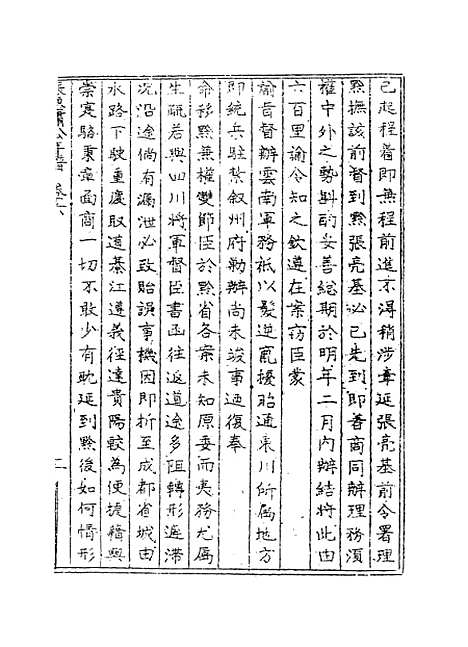 已起程着即兼程前進不得稍涉牽延張亮基前令署理
黔撫該前督到黔張亮基必已先到即善商同辦理務須
權中外之勢斟酌妥善總期於明年二月內辦結將此由
六百里諭令知之欽遵在案竊臣蒙
諭旨督辦雲南軍務祇以髮逆竄擾昭通東川所屬地方
即統兵駐紮叙州府勦辦尚未竣事迺復奉
命移黔兼權雙節臣於黔省各案未知原委而夷務尤屬
生疏若與四川將軍督臣書函往返道途多阻轉形遲滯
况沿途倘有漏泄必致貽誤事機因即折至成都省城由
水路下駛重慶取道綦江遵義徑達貴陽較為便捷藉與
崇寔駱秉章面商一切不敢少有耽延到黔後如何情形